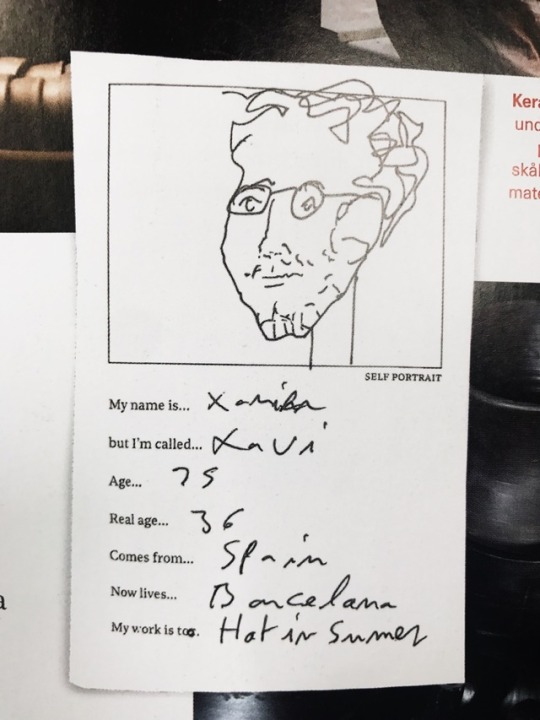 SELF PORTRAIT
My name is... Xavier
but I'm called... Xavi
Age... 75
Real age... 36
Comes from... Spain
Now lives... Barcelana
My work is too. Hot in Summer
Kera
und
skål
mate
a